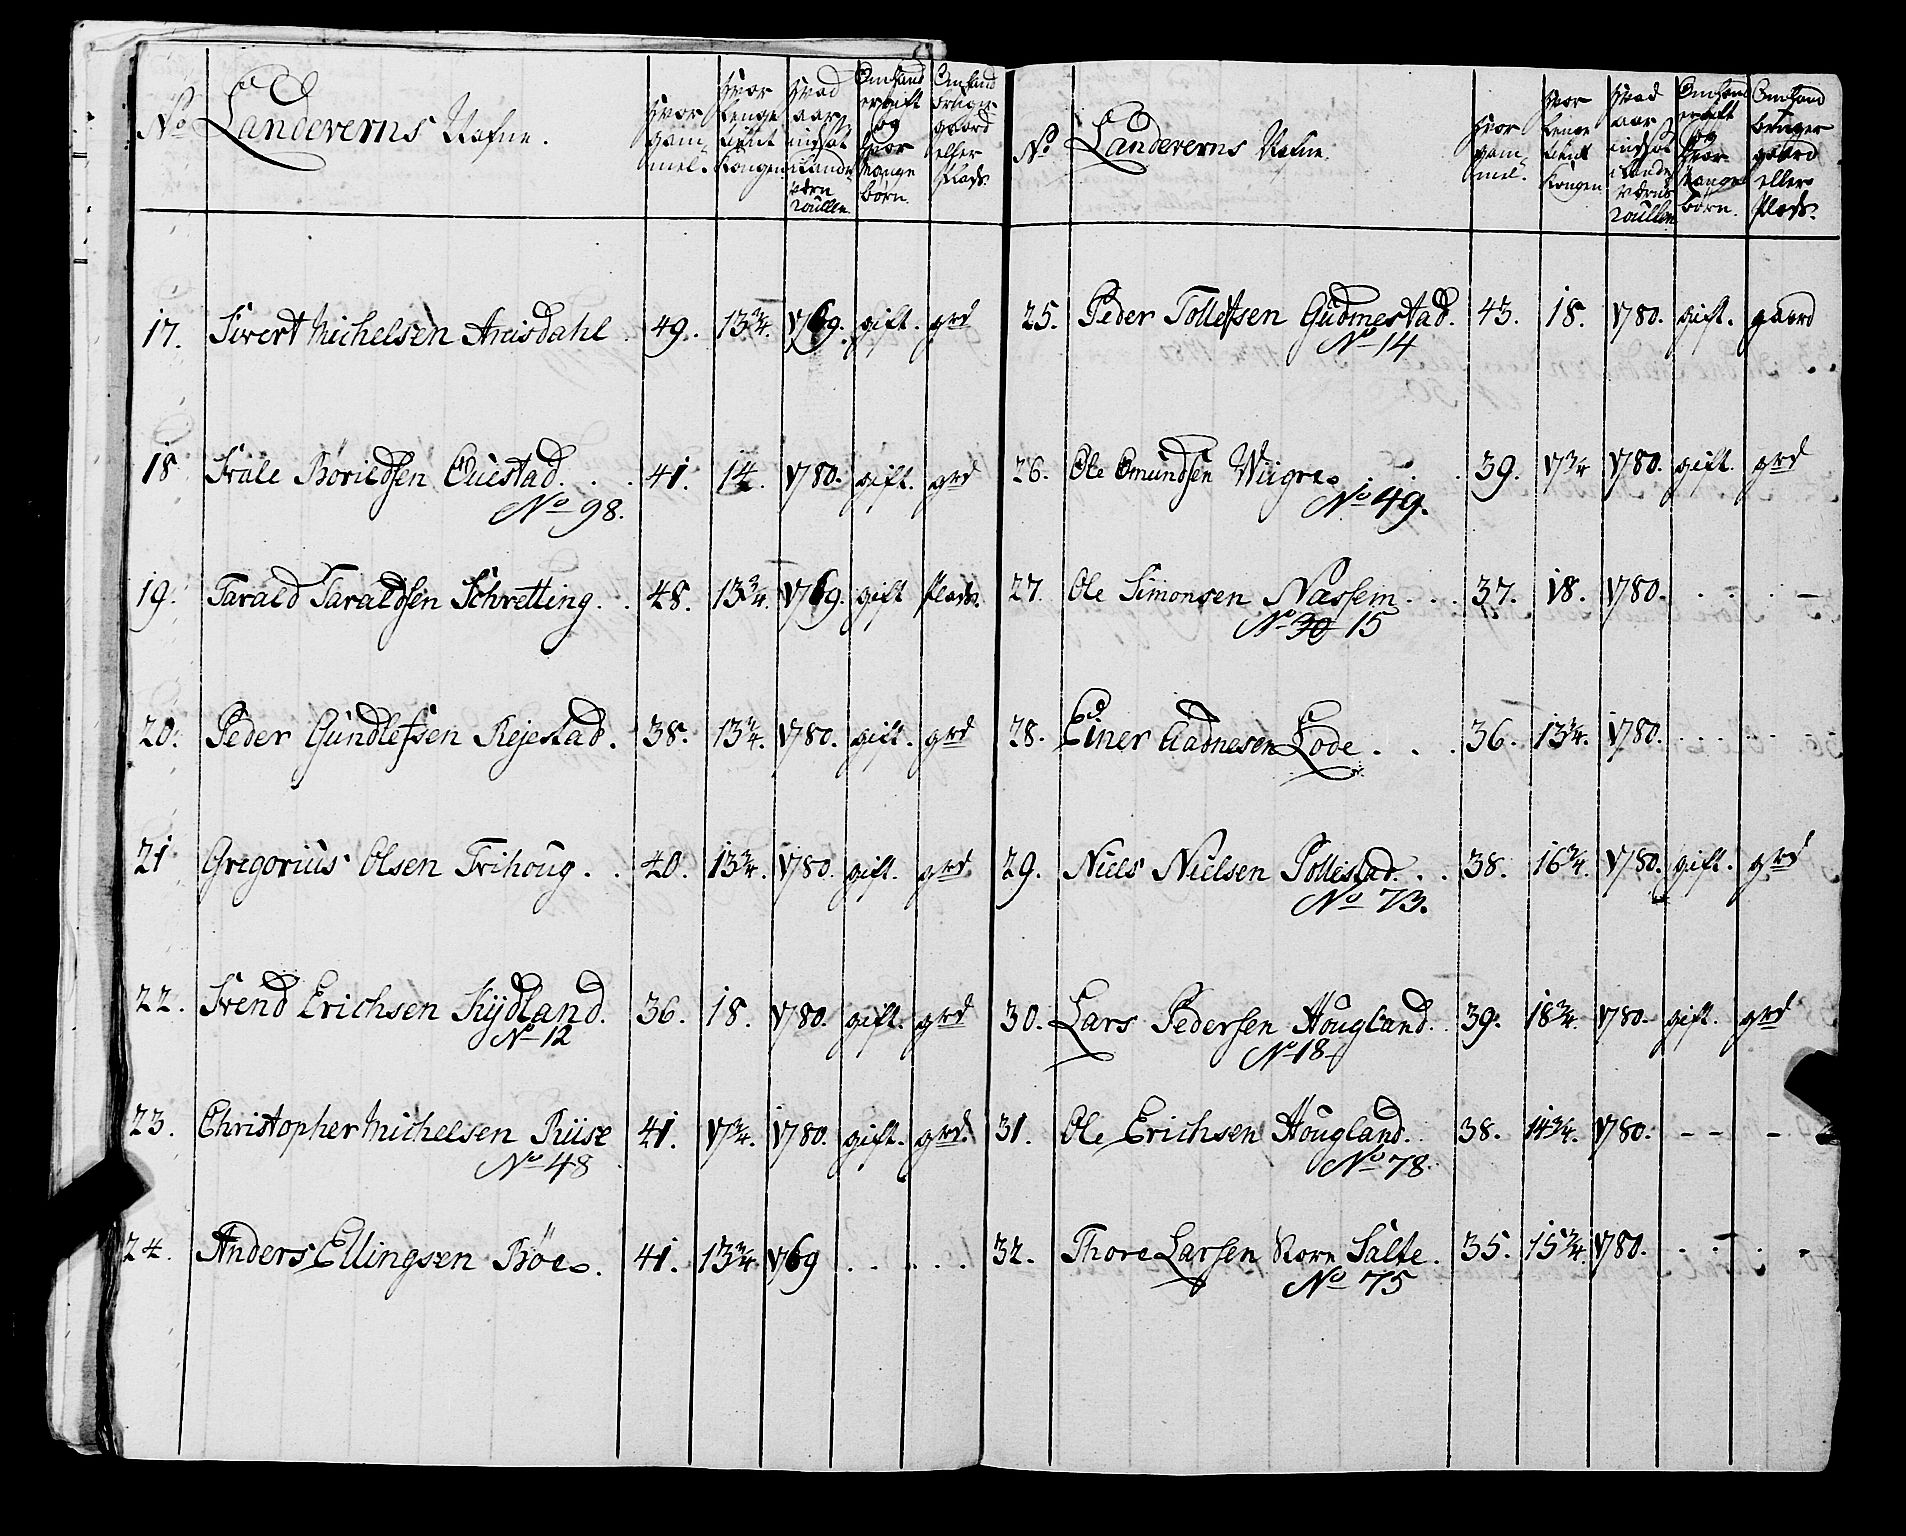 No Landeverns Nafne.
Hvor gam- mel.
Hvor lenge tient Kongen.
Hvad aar indsat i Lande Værn roullen
Om hand er gift og hvor mange børn.
Om hand bruger gaard eller Plads.
17. Sivert Michelsen Areisdahl. 49. 13 3/4. 1769. gift. grd
18 Svale Børildsen Questad. 41. 14. 1780. gift. grd
No 98.
19. Tarald Taraldsen Schretting. 48. 13 3/4. 1769. gift Plads.
20. Peder Gundlefsen Rejestad. 38. 13 3/4. 1780. gift. grd
21 Gregorius Olsen Trihoug. 40. 13 3/4. 1780. gift. grd
22. Svend Erichsen Kydland. 36. 18. 1780. gift. grd
No 12
23. Christopher Michelsen Riise 41. 17 3/4. 1780. gift. grd.
No 48
24. Anders Ellingsen Böe. 41. 13 3/4 1769
No Landeverns Nafne.
Hvor gam- mel.
Hvor lenge tient Kongen
Hvad aar indsat i Lande Værns roullen
Om hand er gift og hvor mange børn.
Om hand bruger gaard eller Plads.
25. Peder Tollefsen Gudmestad. 43. 18. 1780. gift. gaard
No 14
26. Ole Omundsen Wiigre. 39. 17 3/4 1780. gift. grd
No 49.
27. Ole Simonsen Næssem. 37. 18. 1780. -
No 30 15
28. Einer Aadnesen Lode. 36. 13 3/4. 1780.
29. Niels Nielsen Pollestad. 38. 16 3/4. 1780. gift. grd
No 73.
30. Lars Pedersen Hougland. 39. 18 3/4. 1780. gift. grd
No 18
31. Ole Erichsen Hougland. 38. 14 3/4. 1780. - - -
No 78.
32. Thore Larsen Store Salte. 35. 15 3/4. 1780.
No 75